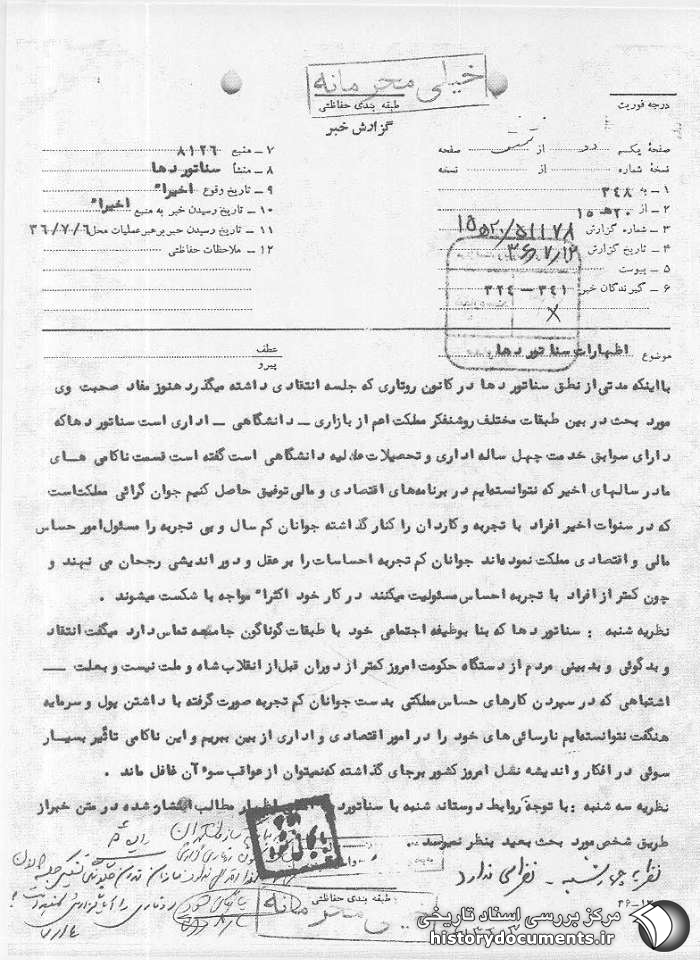 خیلی محرمانه
طبقه بندی حفاظتی
گزارش خبر
درجه فوریت
صفحهٔ یکم از صفحه
نسخهٔ شماره از نسخه
۱ ـ به ۳۴۸
۲ ـ از ۲۰ هـ ۱۵
۳ ـ شماره گزارش
۴ ـ تاریخ گزارش
۵ ـ پیوست
۶ ـ گیرندگان خبر ۳۴۱ ـ ۳۲۴
۷ ـ منبع ۸۱۲۶
۸ ـ منشأ سناتور دها
۹ ـ تاریخ وقوع اخیرا"
۱۰ ـ تاریخ رسیدن خبر به منبع اخیرا"
۱۱ ـ تاریخ رسیدن خبر برهبر عملیات محل ۳۶/۷/۶
۱۲ ـ ملاحظات حفاظتی
موضوع اظهارات سناتور دها
عطف
پیرو
بااینکه مدتی از نطق سناتور دها در کانون روتاری که جلسه انتقادی داشته میگذرد هنوز مفاد صحبت وی
مورد بحث در بین طبقات مختلف روشنفکر مملکت اعم از بازاری ـ دانشگاهی ـ اداری است سناتور دها که
دارای سوابق خدمت چهل ساله اداری و تحصیلات عالیه دانشگاهی است گفته است قسمت ناکامی های
ما در سالهای اخیر که نتوانسته‌ایم در برنامه‌های اقتصادی و مالی توفیق حاصل کنیم جوان گرائی مملکت است
که در سنوات اخیر افراد با تجربه و کاردان را کنار گذاشته جوانان کم سال و بی تجربه را مسئول امور حساس
مالی و اقتصادی مملکت نموده‌اند جوانان کم تجربه احساسات را بر عقل و دور اندیشی رجحان می نهند و
چون کمتر از افراد با تجربه احساس مسئولیت میکنند در کار خود اکثرا" مواجه با شکست میشوند .
نظریه شنبه : سناتور دها که بنا بوظیفه اجتماعی خود با طبقات گوناگون جامعه تماس دارد میگفت انتقاد
و بدگوئی و بدبینی مردم از دستگاه حکومت امروز کمتر از دوران قبل از انقلاب شاه و ملت نیست و بعلت
اشتباهی که در سپردن کارهای حساس مملکتی بدست جوانان کم تجربه صورت گرفته با داشتن پول و سرمایه
هنگفت نتوانسته‌ایم نارسائی های خود را در امور اقتصادی و اداری از بین ببریم و این ناکامی تاثیر بسیار
سوئی در افکار و اندیشه نسل امروز کشور برجای گذاشته که نمیتوان از عواقب سوء آن غافل ماند .
نظریه سه شنبه : با توجه روابط دوستانه شنبه با سناتور دها اظهار مطالب انتشار شده در متن خبر از
طریق شخص مورد بحث بعید بنظر نمیرسد .
نظریه چهارشنبه ـ نظری ندارد
طبقه بندی حفاظتی
خیلی محرمانه
مرکز بررسی اسناد تاریخی
historydocuments.ir